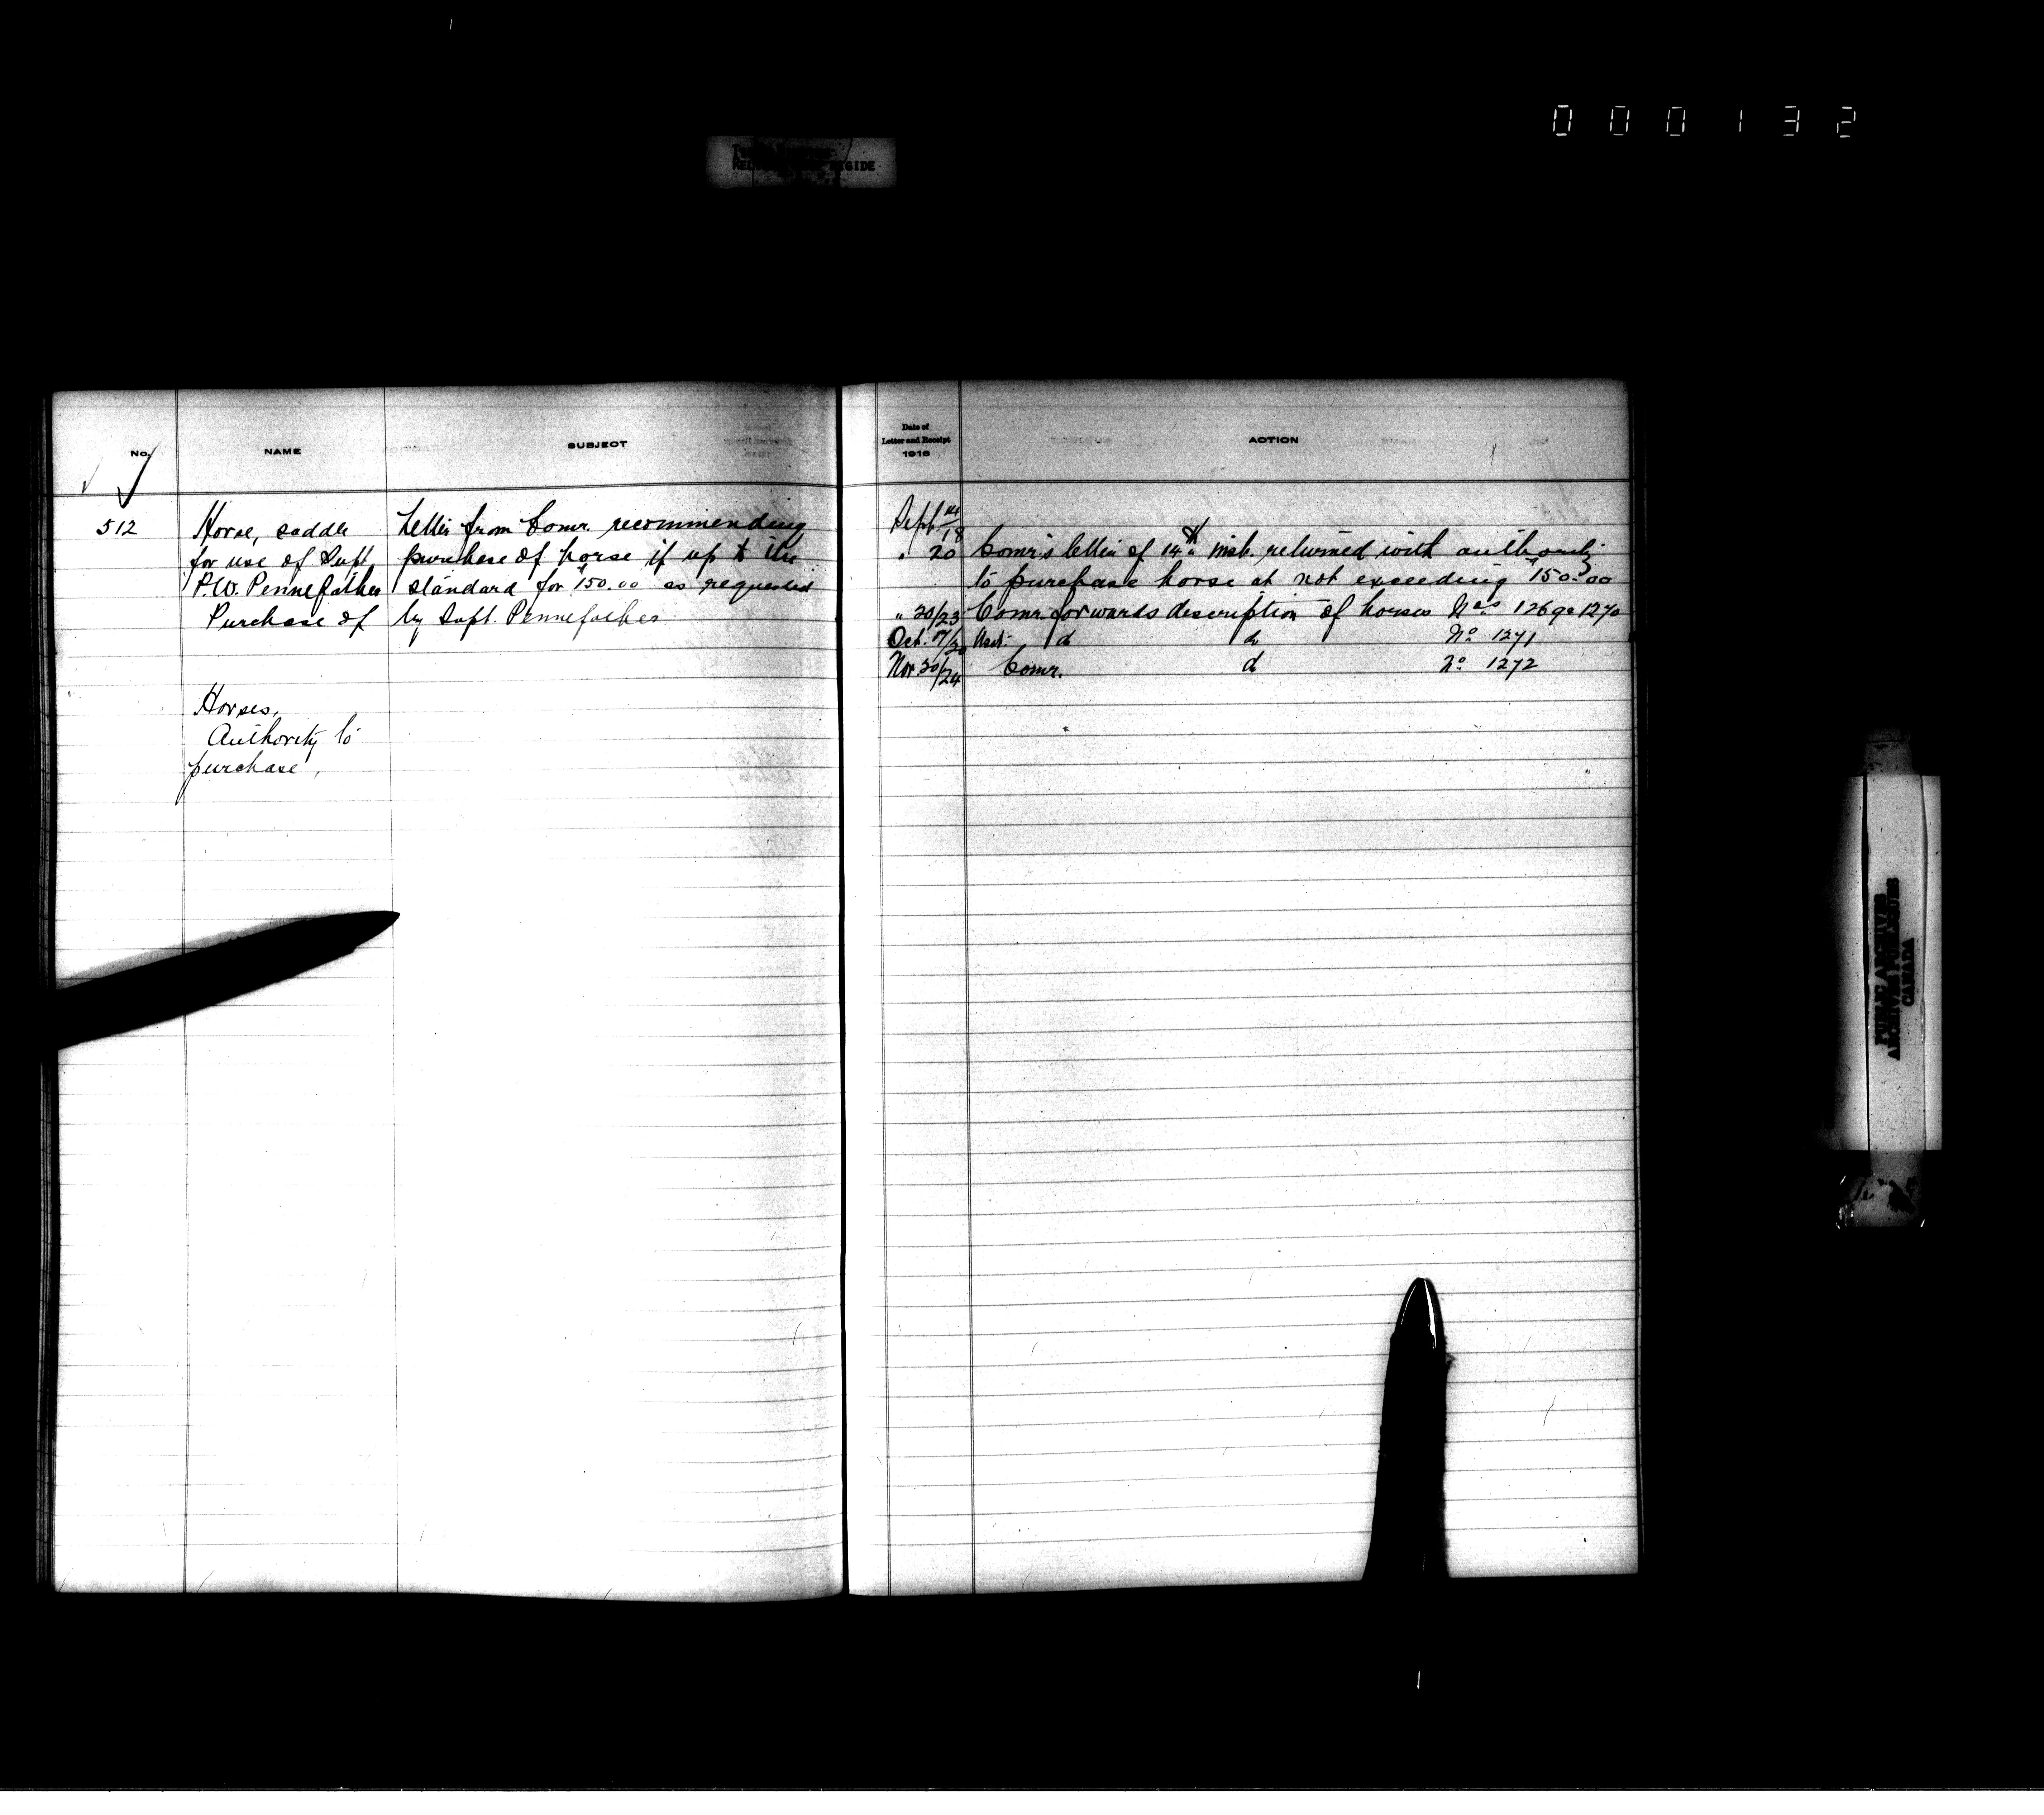 000132
No.
NAME
SUBJECT
Date of
Letter and Receipt
1916
ACTION
512
Horse, saddle
for use of Supt.
P.W. Pennefather
Purchase of
Letter from Comr. recommending
purchase of horse if up to the
standard for $150.00 as requested
by Supt. Pennefather
Sept. 14/18
" 20
Comr's letter of 14th inst. returned with authority
to purchase horse at not exceeding $150.00
" 20/23 Comr. forwards description of horses Nos 1269 & 1270
Oct. 17/20 Asst. do do No 1271
Nov 20/24 Comr. do No 1272
Horses,
Authority to
purchase,
PUBLIC ARCHIVES
ARCHIVES PUBLIQUES
CANADA